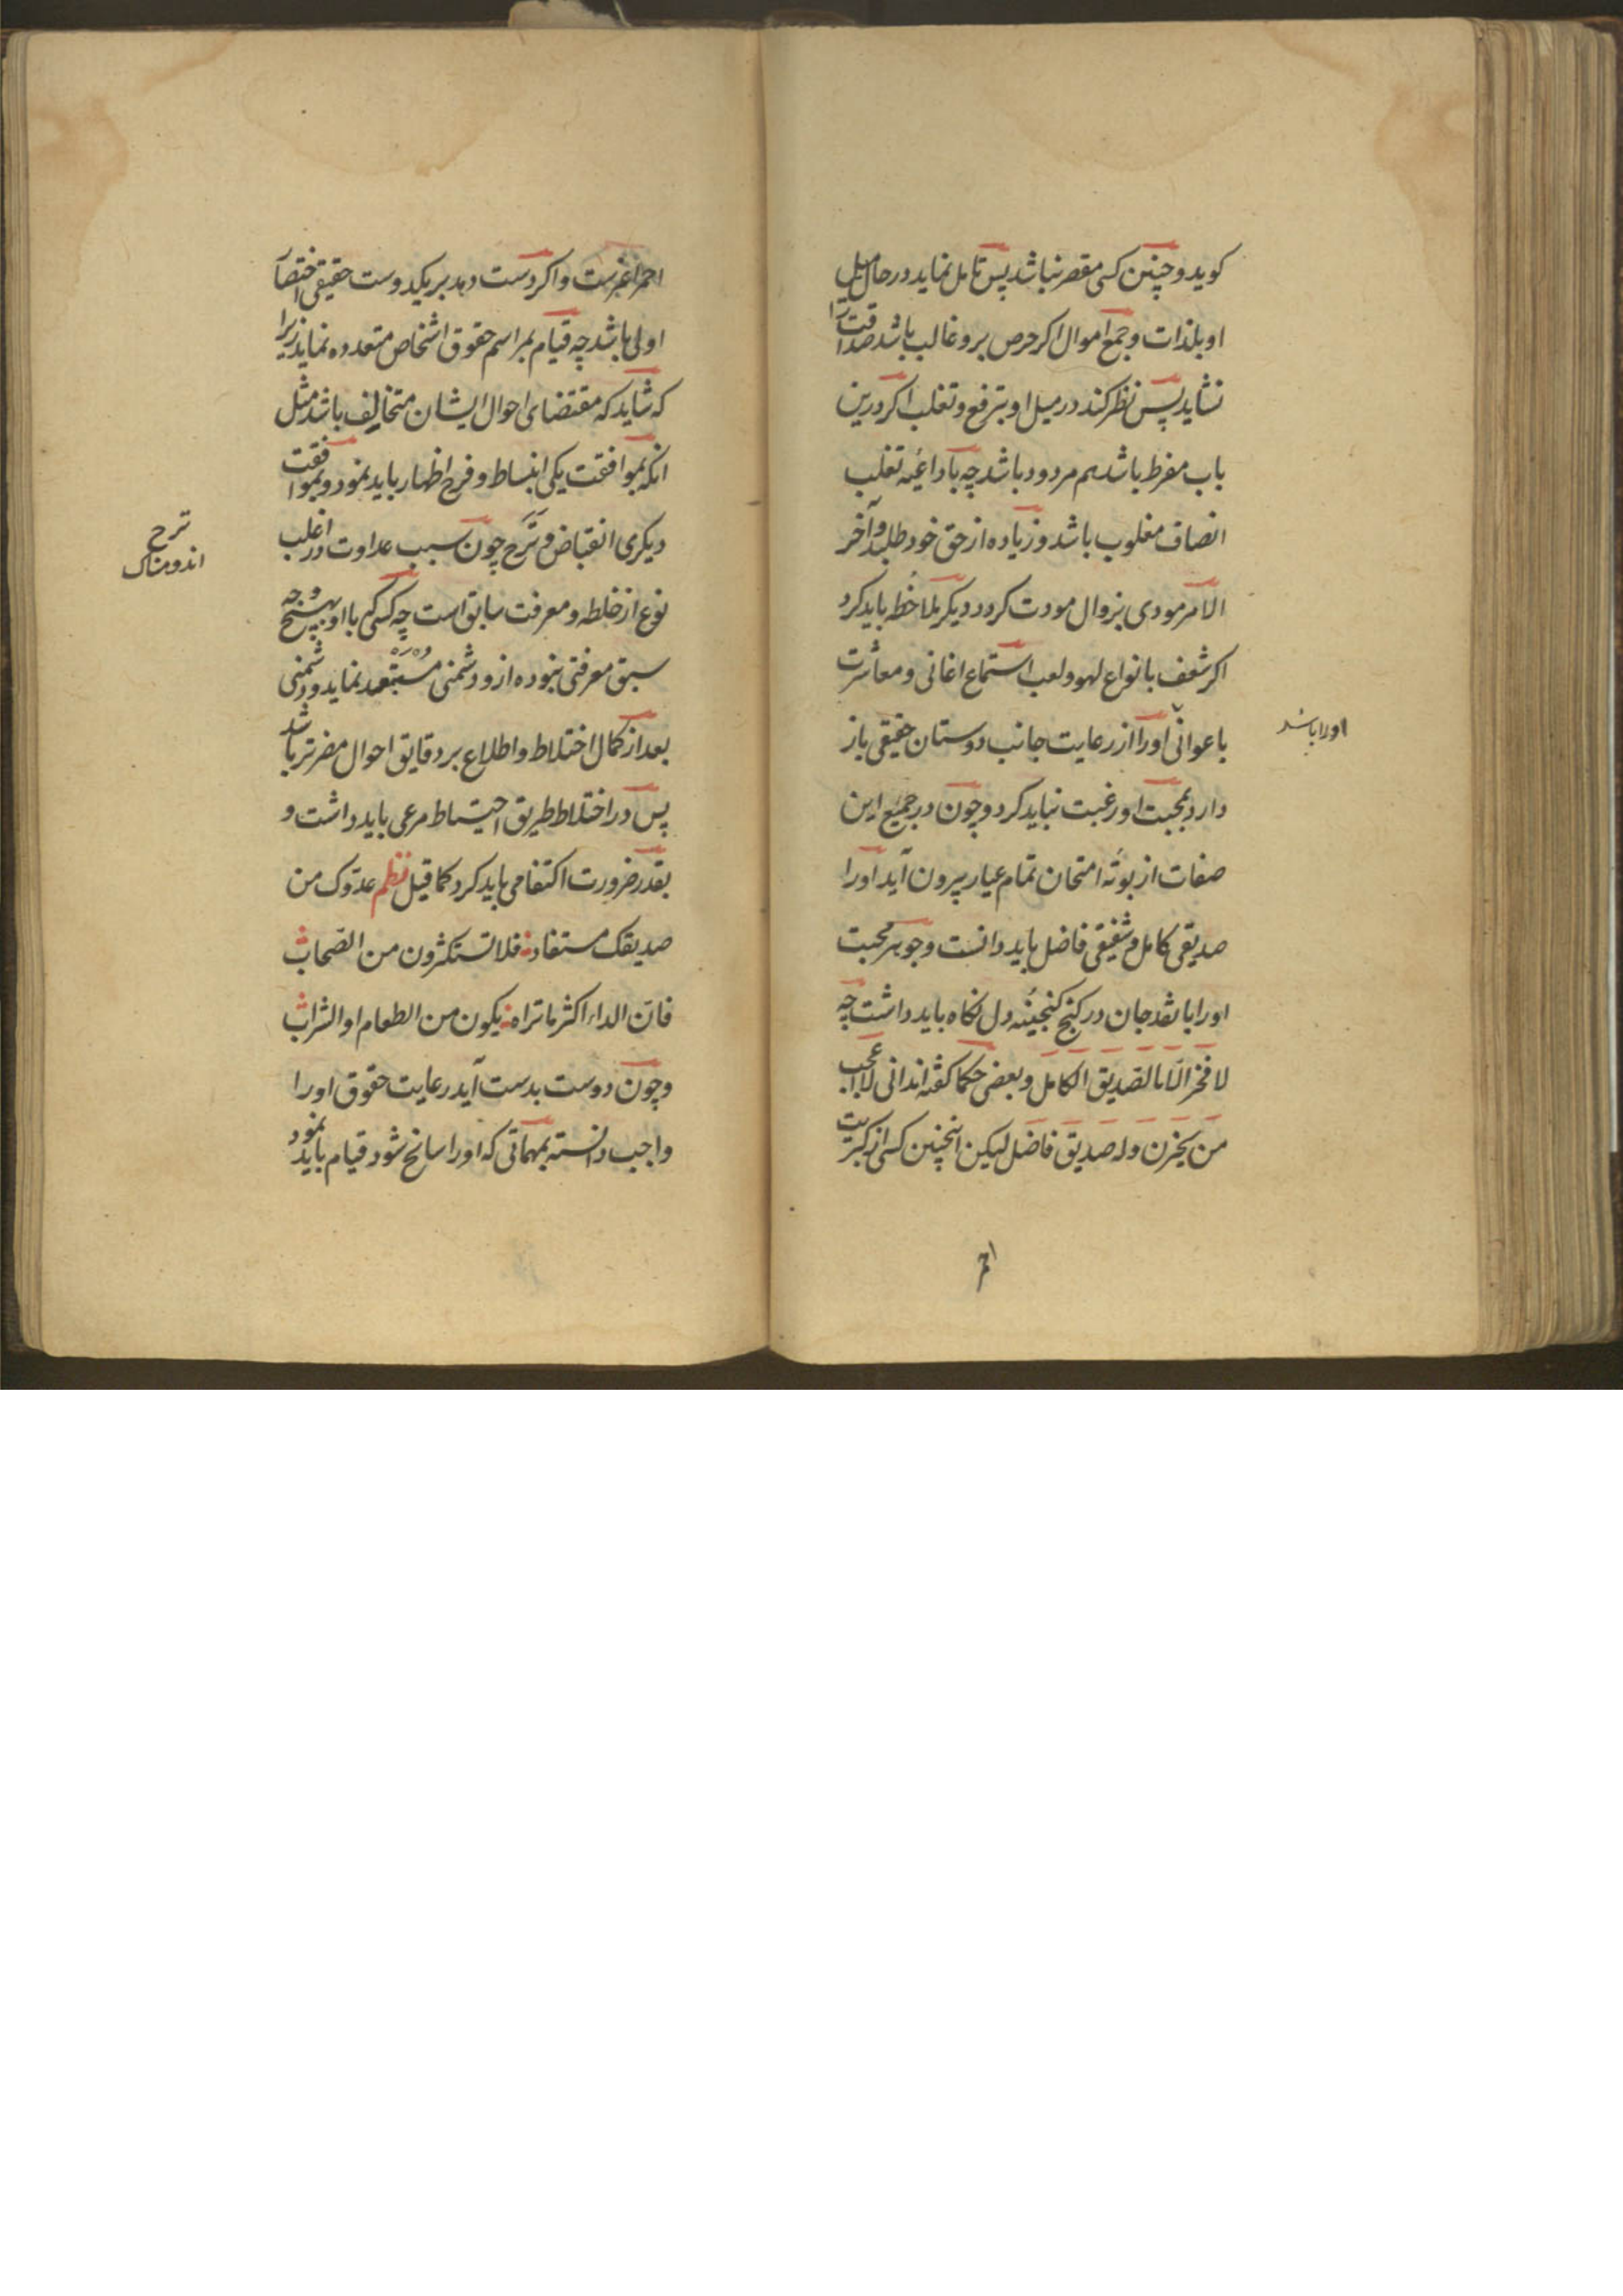 کوید و چنین کسی مقصر نباشد پس تامل نماید در حال میل
او بلذات و جمع اموال اکر حرص برو غالب باشد صداقت را
نشاید پس نظر کند در میل او بترفع و تغلب اکر درین
باب مفرط باشد هم مردود باشد چه با داعیه تغلب
انصاف مغلوب باشد و زیاده از حق خود طلبد و آخر
الامر مودی بزوال مودت کردد دیکر ملاحظه باید کرد
اکر شعف بانواع لهو و لعب استماع اغانی و معاشرت
با عوانی او را از رعایت جانب دوستان حقیقی باز
دارد بمحبت او رغبت نباید کرد و چون در جمیع این
صفات از بوته امتحان تمام عیار بیرون آید او را
صدیقی کامل و شفیقی فاضل باید دانست و جوهر محبت
او را با نقد جان در کنج کنجینه دل نکاه باید داشت چه
لا فخر الا بالصدیق الکامل و بعضی حکما کفته اند انی لاعجب
من یحزن وله صدیق فاضل لیکن اینچنین کسی از کبریت
احمر
او را باشد
احمر اعز است و اکر دست دهد بر یکدوست حقیقی اختصار
اولی باشد چه قیام بمراسم حقوق اشخاص متعدده نماید زیرا
که شاید که مقتضای احوال ایشان متخالف باشد مثل
انکه بموافقت یکی انبساط و فرح اظهار باید نمود و بموافقت
دیکری انقباض و ترح چون سبب عداوت در اغلب
نوع از خلطه و معرفت سابق است چه کسی که با او بهیچ وجه
سبق معرفتی نبوده ازو دشمنی مستبعد نماید و دشمنی
بعد از کمال اختلاط و اطلاع بر دقایق احوال مضرتر باشد
پس در اختلاط طریق احتیاط مرعی باید داشت و
بقدر ضرورت اکتفا می باید کرد کما قیل نظم عدوک من
صدیقک مستفاد فلا تستکثرون من الصحاب
فان الداء اکثر ما تراه یکون من الطعام او الشراب
و چون دوست بدست آید رعایت حقوق او را
واجب دانسته بمهماتی که او را سانح شود قیام باید نمود
ترح
اندوهناک